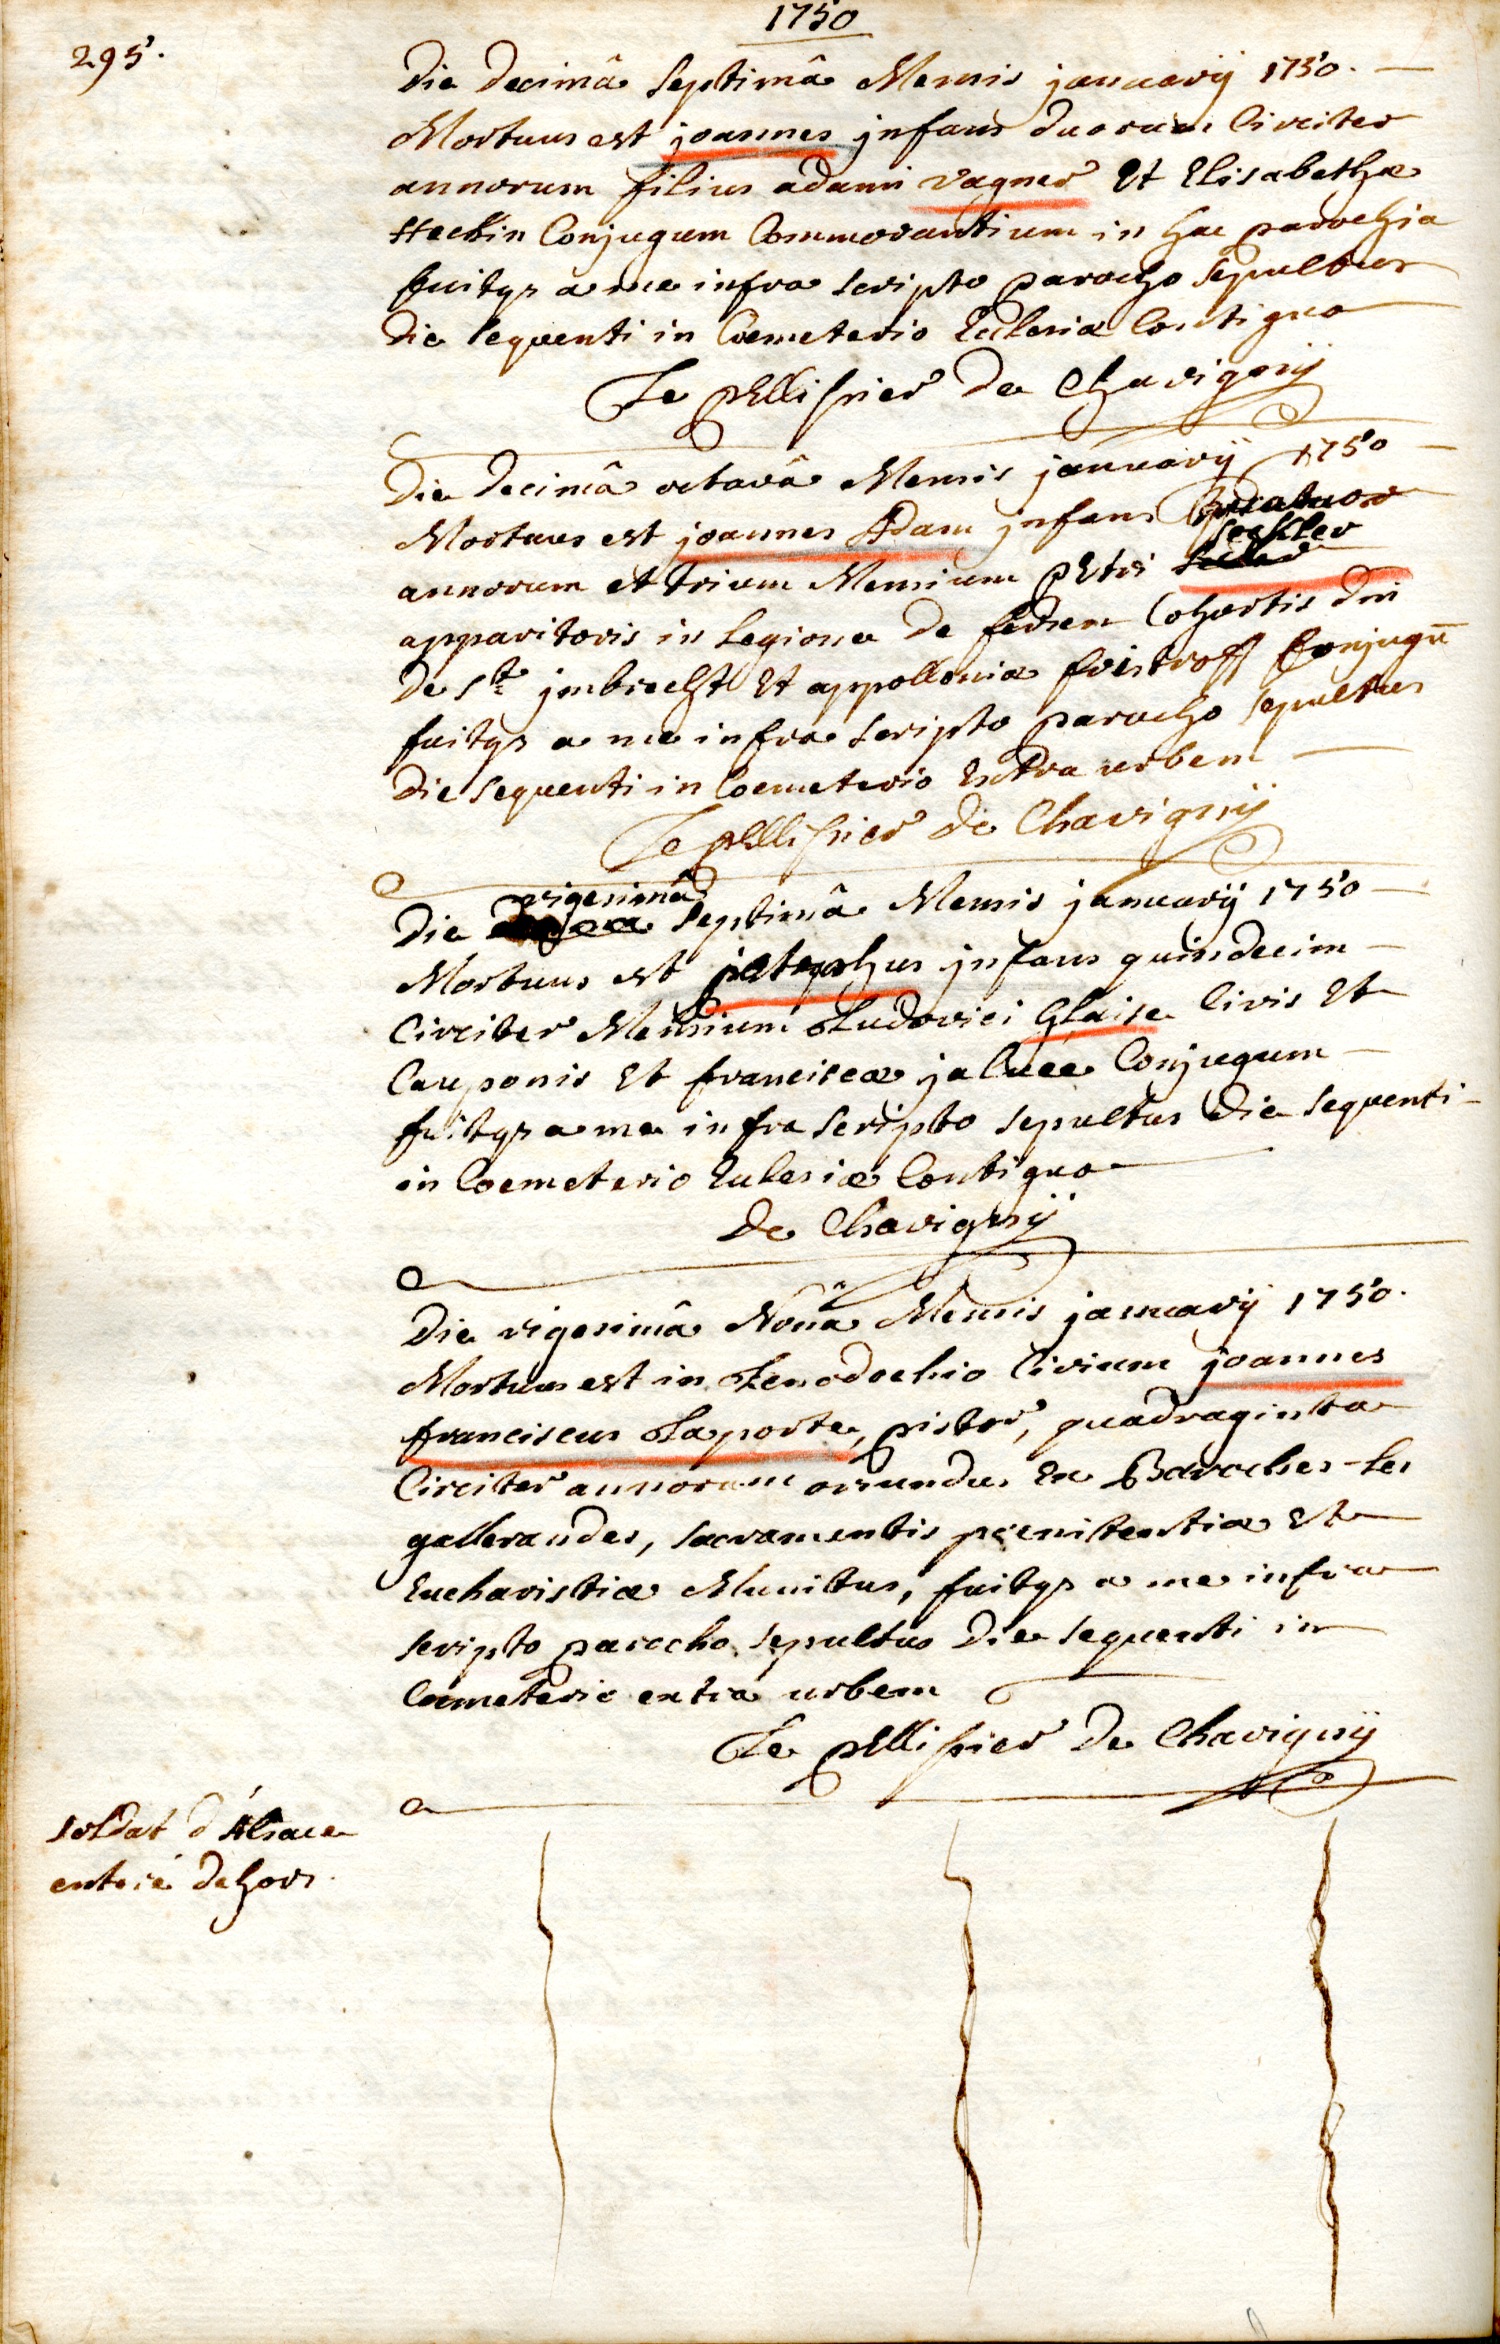 1750
295.
Die Decimâ Septimâ Mensis januarij 1750.
Mortuus est joannes jnfans duorum Circiter
annorum filius adami vagner Et Elisabethæ
Heckin Conjugum Commorantium in hac parochia
fuitqz a me infra scripto parocho sepultus
die sequenti in Coemeterio Ecclesiæ Contiguo
Le pEllissier De Chavignÿ
Die Decimâ octavâ Mensis januarij 1750
Mortuus est joannes Adam jnfans quatuor
annorum et trium Mensium pEtri seckler
apparitoris in Legione De fersen Cohortis Dni
De St jmbrecht Et appolloniæ fristroff Conjugū
fuitqz a me infra scripto parocho sepultus
Die sequenti in Coemeterio Extra urbem
Le pEllissier De Chavignÿ
Die vigesimâ Septimâ Mensis januarij 1750
Mortuus est josephus jnfans quindecim
Circiter Mensium Ludovici Glaise Civis Et
Cauponis Et franciscæ Conjugum
fuitqz a me infra scripto sepultus Die sequenti
in Coemeterio Ecclesiæ Contiguo
De Chavignÿ
Die vigesimâ Nonâ Mensis januarij 1750.
Mortuus est in Xenodochio Civium joannes
franciscus Laporte, pistor, quadraginta
Circiter annorum oriundus Ex Baroches-les
gallerandes, sacramentis pœnitentiæ Et
Eucharistiæ Munitus, fuitqz a me infra
scripto parocho sepultus Die sequenti in
Coemeterio extra urbem
Le pEllissier De Chavignÿ
soldat d'Alsace
enteré dehors.